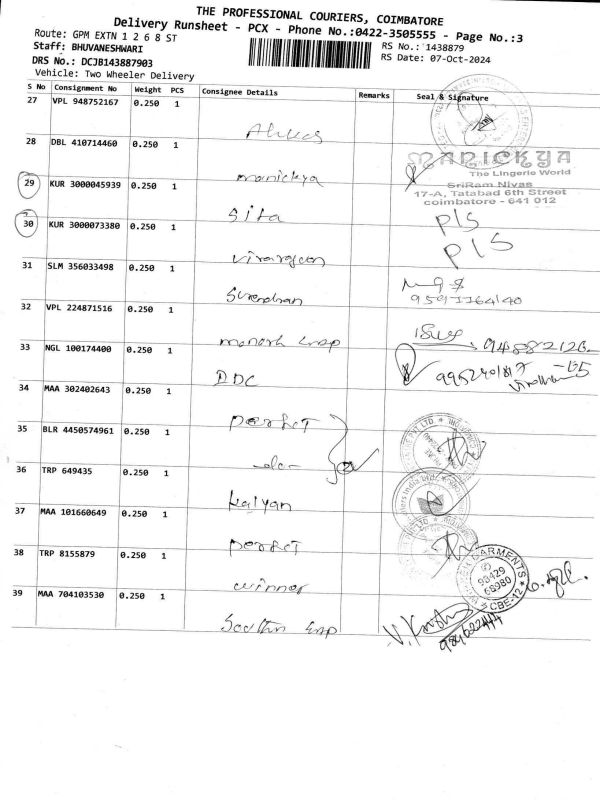 THE PROFESSIONAL COURIERS, COIMBATORE
Delivery Runsheet - PCX - Phone No.:0422-3505555 - Page No.:3
Route: GPM EXTN 1 2 6 8 ST
RS No.: 1438879
Staff: BHUVANESHWARI
RS Date: 07-Oct-2024
DRS No.: DCJB143887903
Vehicle: Two Wheeler Delivery
S No Consignment No Weight PCS Consignee Details Remarks Seal & Signature
27 VPL 948752167 0.250 1
28 DBL 410714460 0.250 1 manickya
MANICKYA
The Lingerie World
SriRam Nivas
17-A, Tatabad 6th Street
coimbatore - 641 012
29 KUR 3000045939 0.250 1 Sita P/S
30 KUR 3000073380 0.250 1 P/S
31 SLM 356033498 0.250 1 Surendran
32 VPL 224871516 0.250 1
33 NGL 100174400 0.250 1 DDC
34 MAA 302402643 0.250 1 perfect
35 BLR 4450574961 0.250 1 -do-
36 TRP 649435 0.250 1 kalyan
37 MAA 101660649 0.250 1 perfect
38 TRP 8155879 0.250 1 winner
GARMENTS
98429
68980
CBE-12
39 MAA 704103530 0.250 1